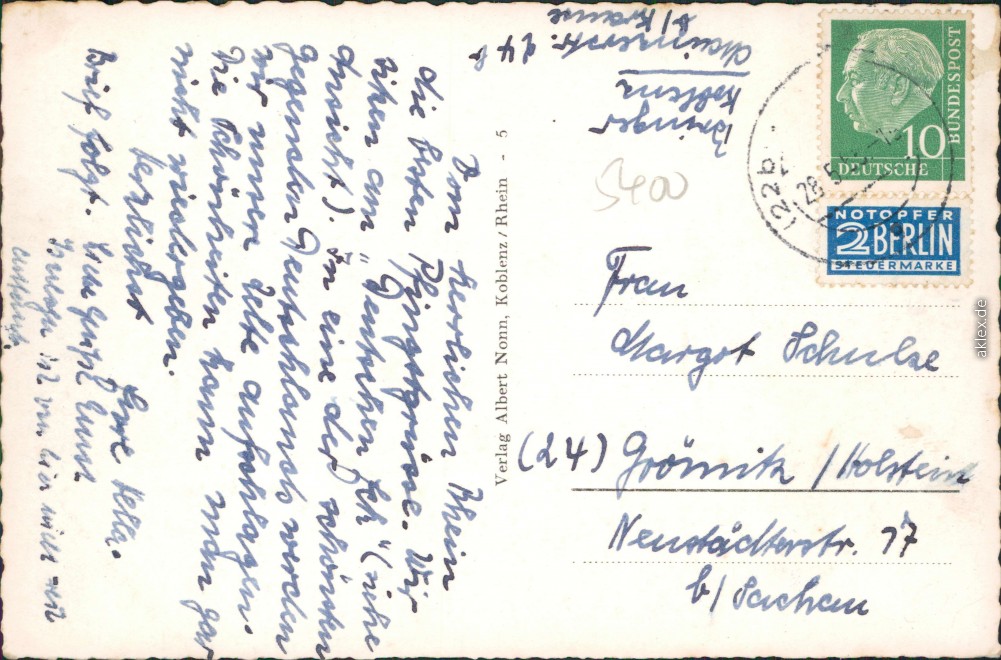 Vom herrlichen Rhein
die besten Pfingstgrüsse. Wir
sitzen am „Deutschen Eck" (siehe
Ansicht). In eine der schönsten
Gegenden Deutschlands werden
wir unser Zelte aufschlagen.
Die Schönheiten kann man gar
nicht wiedergeben.
Herzlichst
Eure Hella.
Brief folgt.
Verlag Albert Nonn, Koblenz/Rhein - 5
Koblenz
Mainzerstr. 24
b/Krause
5400
BUNDESPOST
10
DEUTSCHE
(22b)
28.5.
NOTOPFER
2 BERLIN
STEUERMARKE
Frau
Margot Schulze
(24) Grömitz /Holstein
Neustädterstr. 17
b/ Sachau
aklex.de